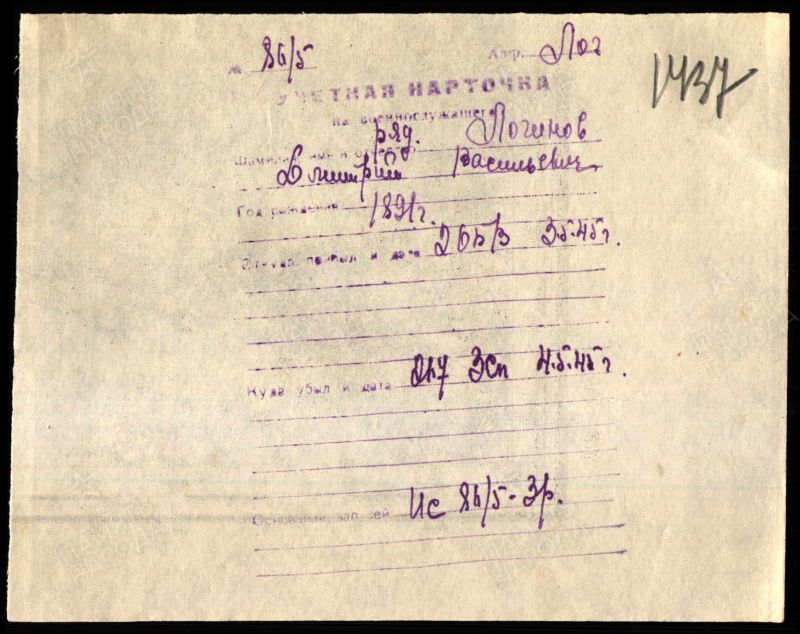 № 86/5 Алф. Лог
1437
УЧЕТНАЯ КАРТОЧКА
на военнослужащего
ряд. Логинов
Фамилия, имя и отчество
Дмитрий Васильевич
Год рождения 1891г.
Откуда прибыл и дата 26 3.5.45г.
Куда убыл и дата 247 Зсп 4.5.45г.
Основание записей Ис 86/5-3р.